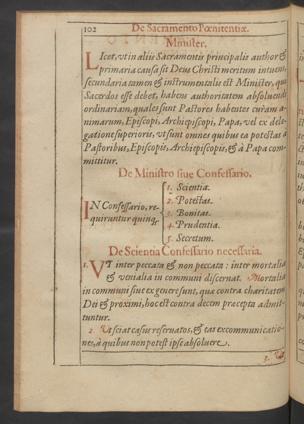 102 De Sacramento Pœnitentiæ.
Minister.
LIcet, vt in aliis Sacramentis principalis author &
primaria causa sit Deus Christi meritum intuens
secundaria tamen & instrumentalis est Minister, qui
Sacerdos esse debet, habens authoritatem absoluendi
ordinariam, quales sunt Pastores habentes curam a-
nimarum, Episcopi, Archiepiscopi, Papa, vel ex dele-
gatione superioris, vt sunt omnes quibus ea potestas à
Pastoribus, Episcopis, Archiepiscopis, & à Papa com-
mittitur.
De Ministro siue Confessario.
IN Confessario, re-
quiruntur quinq;
1. Scientia.
2. Potestas.
3. Bonitas.
4. Prudentia.
5. Secretum.
De Scientia Confessario necessaria.
1. VT inter peccata & non peccata: inter mortalia
& venialia in communi discernat. Mortalia
in communi siue ex genere sunt, quæ contra charitatem
Dei & proximi, hoc est contra decem præcepta admit-
tuntur.
2. Vt sciat casus reseruatos, & eas excommunicatio-
nes, à quibus non potest ipse absoluere.
3.